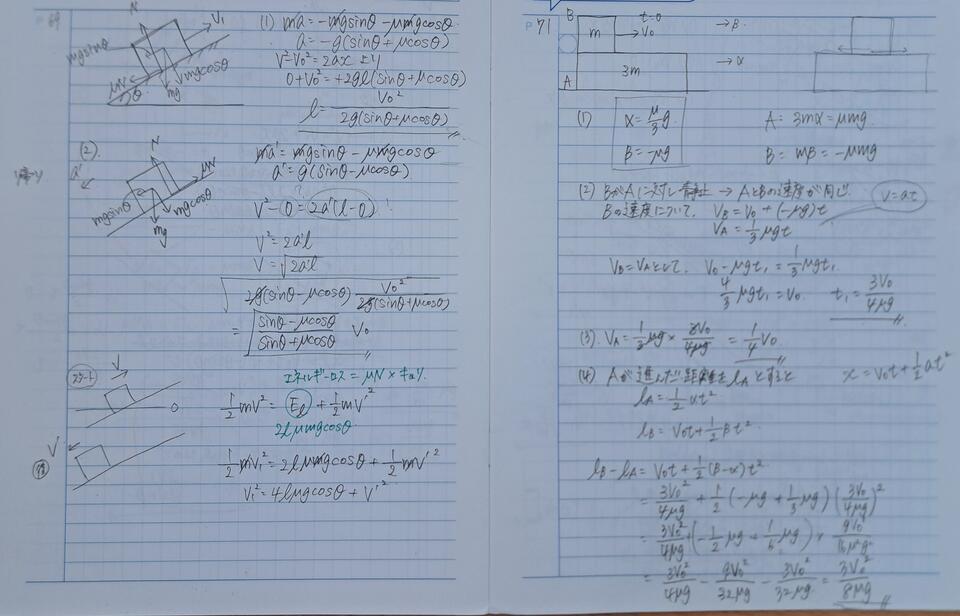 69
N
V₁
mgsinθ
μN
θ
mg
mgcosθ
(1) ma = -mgsinθ - μmgcosθ
a = -g(sinθ + μcosθ)
V² - V₀² = 2ax より
0 + V₀² = +2gl(sinθ + μcosθ)
l = V₀² / 2g(sinθ + μcosθ)
(2)
N
a'
μN
mgsinθ
mgcosθ
mg
ma' = mgsinθ - μmgcosθ
a' = g(sinθ - μcosθ)
V² - 0 = 2a'(l - 0)
V² = 2a'l
V = √2a'l
√2g(sinθ - μcosθ) V₀² / 2g(sinθ + μcosθ)
= √(sinθ - μcosθ / sinθ + μcosθ) V₀
スタート
V
エネルギーロス = μN × キョリ
½mV² = Eℓ + ½mV'²
2lμmgcosθ
V
½mV₁² = 2lμmgcosθ + ½mV'²
V₁² = 4lμgcosθ + V'²
P71
B
m
t=0
V₀
→ β
→ α
A
3m
(1)
α = μ/3 g
β = -μg
A = 3mα = μmg
B = mβ = -μmg
(2) BがAに対し静止 → AとBの速度が同じ
Bの速度について、 V_B = V₀ + (-μg)t
V = at
V_A = ⅓μgt
V_B = V_Aとして、 V₀ - μgt₁ = ⅓μgt₁
4/3 μgt₁ = V₀
t₁ = 3V₀ / 4μg
(3) V_A = ⅓μg × 3V₀ / 4μg = ¼V₀
(4) Aが進んだ距離をl_Aとすると
x = V₀t + ½at²
l_A = ½αt²
l_B = V₀t + ½βt²
l_B - l_A = V₀t + ½(β - α)t²
= 3V₀² / 4μg + ½(-μg + ⅓μg)(3V₀ / 4μg)²
= 3V₀² / 4μg + (-½μg + ⅙μg) × 9V₀² / 16μ²g²
= 3V₀² / 4μg - 9V₀² / 32μg - 3V₀² / 32μg = 3V₀² / 8μg